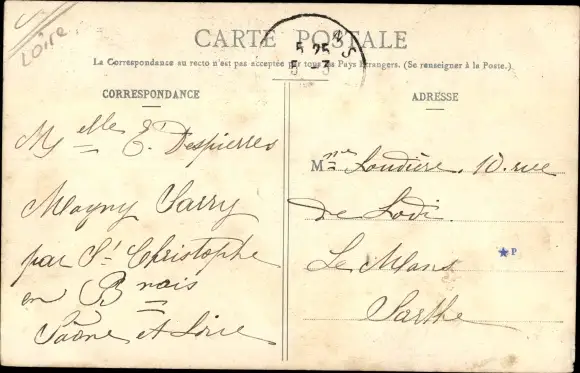 Loire.
CARTE POSTALE
La Correspondance au recto n'est pas acceptée par tous les Pays Etrangers. (Se renseigner à la Poste.)
5 25
5 -3
CORRESPONDANCE
Melle E. Despierres
Magny Sarry
par St Christophe
en Bnais
Saône et Loire
ADRESSE
Mme Loudière. 10. rue
de Lodi.
Le Mans
Sarthe
P